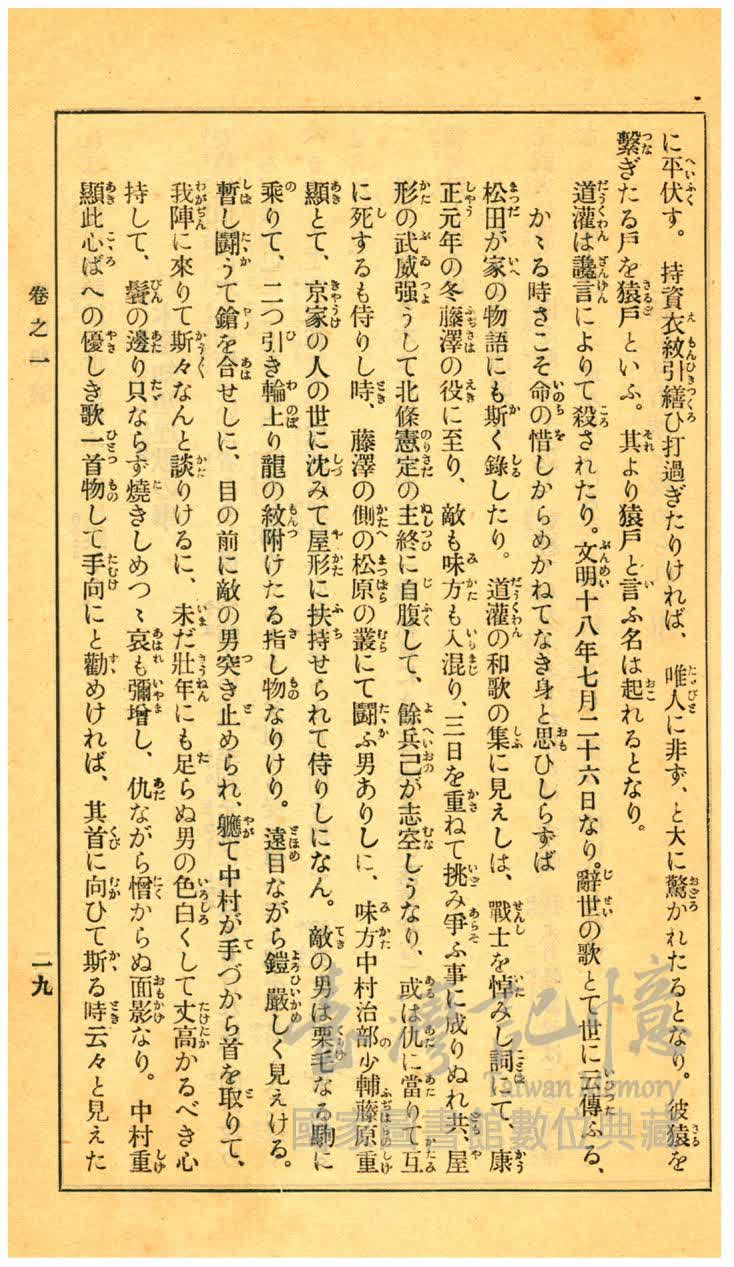 に平伏す。持資衣紋引繕ひ打過ぎたりければ、唯人に非ず、と大に驚かれたるとなり。彼猿を
繫ぎたる戶を猿戶といふ。其より猿戶と言ふ名は起れるとなり。
道灌は讒言によりて殺されたり。文明十八年七月二十六日なり。辭世の歌とて世に云傳ふる、
かゝる時さこそ命の惜しからめかねてなき身と思ひしらずば
松田が家の物語にも斯く錄したり。道灌の和歌の集に見えしは、戰士を悼みし詞にて、康
正元年の冬藤澤の役に至り、敵も味方も入混り、三日を重ねて挑み爭ふ事に成りぬれ共、屋
形の武威强うして北條憲定の主終に自腹して、餘兵己が志空しうなり、或は仇に當りて互
に死するも侍りし時、藤澤の側の松原の叢にて鬪ふ男ありしに、味方中村治部少輔藤原重
顯とて、京家の人の世に沈みて屋形に扶持せられて侍りしになん。敵の男は栗毛なる駒に
乘りて、二つ引き輪上り龍の紋附けたる指し物なりけり。遠目ながら鎧嚴しく見えける。
暫し鬪うて鎗を合せしに、目の前に敵の男突き止められ、軈て中村が手づから首を取りて、
我陣に來りて斯々なんと談りけるに、未だ壯年にも足らぬ男の色白くして丈高かるべき心
持して、鬢の邊り只ならず燒きしめつゝ哀も彌增し、仇ながら憎からぬ面影なり。中村重
顯此心ばへの優しき歌一首物して手向にと勸めければ、其首に向ひて斯る時云々と見えた
卷之一
一九
臺灣記憶
Taiwan Memory
國家圖書館數位典藏